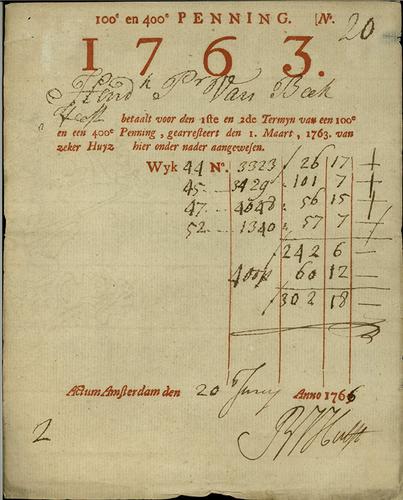 100e en 400e PENNING. [No. 20
1763.
Hendk Pr Van Beek
Heeft betaalt voor den 1ste en 2de Termyn van een 100e
en een 400e Penning, gearresteert den 1. Maart, 1763. van
zeker Huyz hier onder nader aangewesen.
Wyk 44 No. 3323 / 26 17 —
45 3429 - 101 7 —
47 4048 - 56 15 —
52 1340 - 57 7 —
/ 242 6 —
400e 60 12 —
/ 302 18 —
Actum Amsterdam den 20 Juny Anno 1766
2